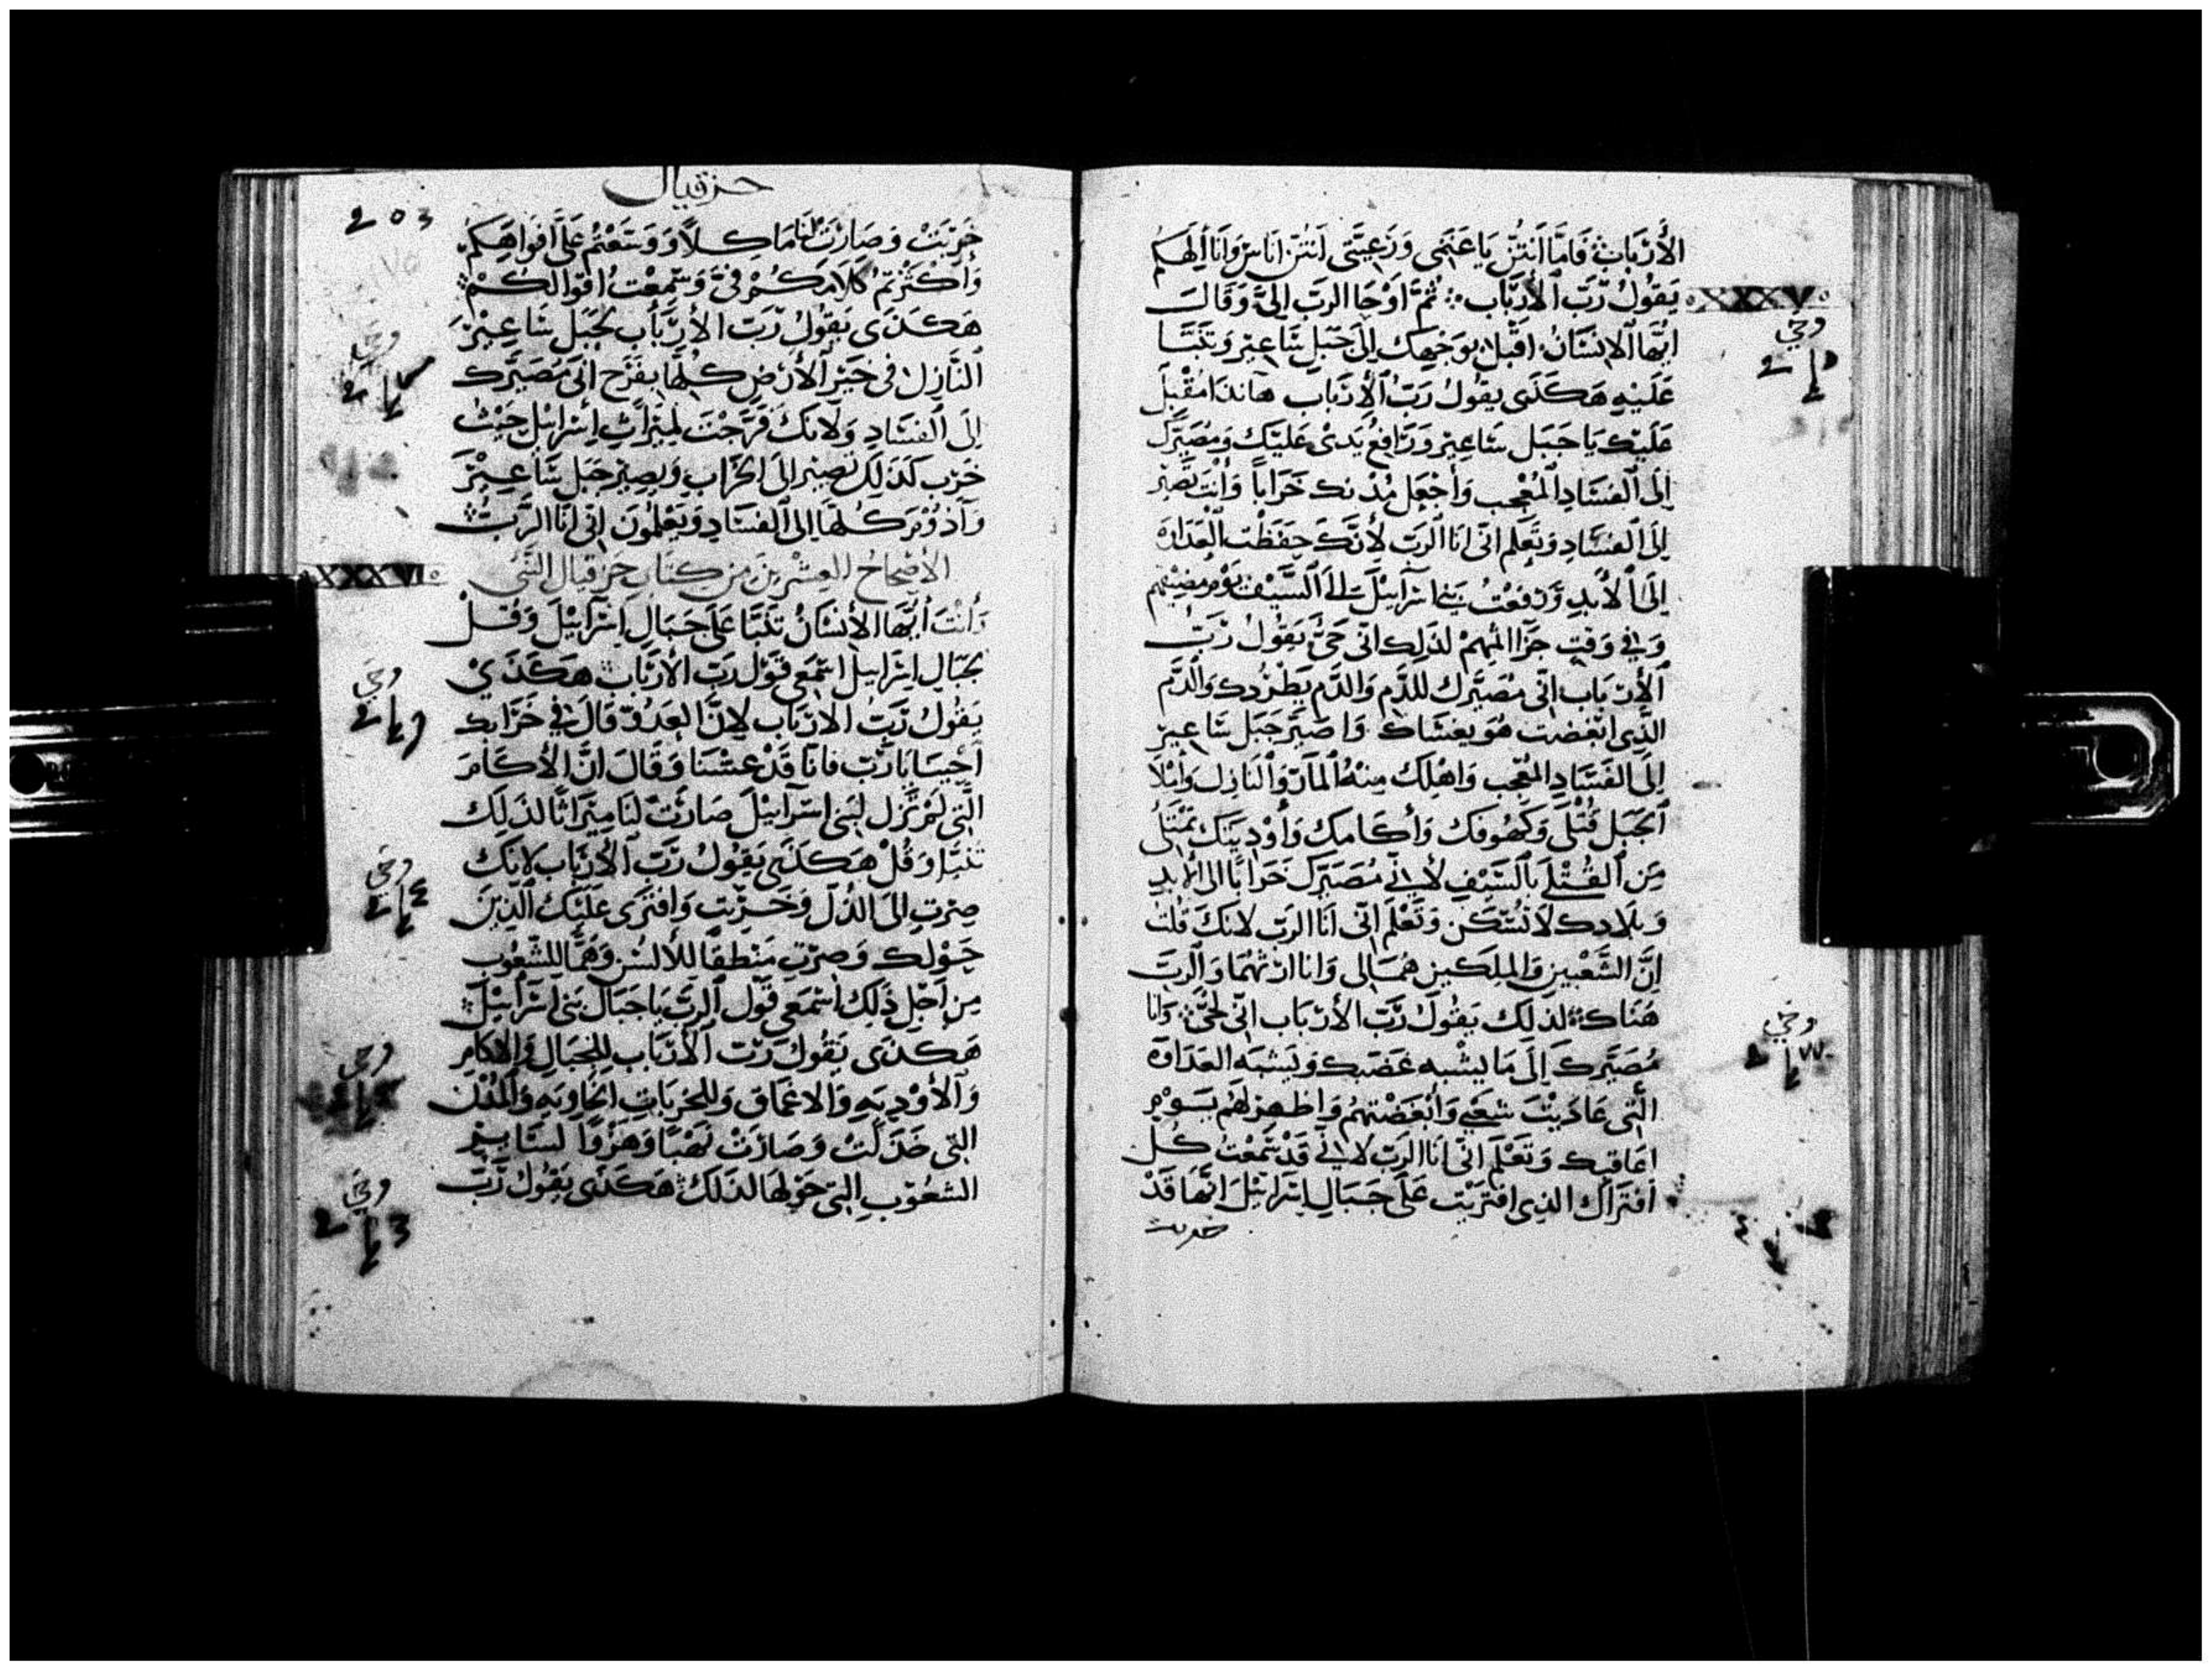 الأَرْبَابِ فَامَّا اَنتُنَّ يَا غَنَمِى وَرَعِيَّتِى اَنتُنَّ اُنَاسٌ وَانَا اِلَهَكُم
يَقولُ رَّبَ الأَرْبَاب ثُمَّ اوْحَا الرَبَ اِلىَّ وَقَالَ
XXXV
ايُّهَا الاِنسَانُ اقبِل بوَجْهِك اِلَى جَبَلِ سَاعِيْر وَتَنَبَّا
عَلَيْهِ هَكَذَى يقولُ رَبُ الأَرْبَاب هَانَدَا مُقْبِلٌ
عَلَيْك يَا جَبَل سَاعِيْر وَرَافِعُ يَدىْ عَليْك وَمُصَيِّرَك
اِلَى الفسَادِ المُعْجِب وَأجْعَل مُدْنك خَرَاباً وَأَنْت تَصِيْر
اِلَى الفسَادِ وَتَعلَم انّى انَا الرَبّ لأَنَّكَ حِفَظْت العَدَاوَة
اِلَى الأَبدِ وَدَفَعْت بَنِى اسْرَآئِيْلَ اِلَى السَّيْف يَوْم مصِيْبتهم
وَفِى وَقتِ جزَآ اثمهِمْ لذَلِك انّى حَىٌّ يَقُولُ رَبّ
الأَرْبَاب انّى مُصَيِّرَك لِلدَّمِ وَالدَّم يَطْرُدك وَالدَّم
الذِّى ابْغَضْت هُوَ يغشَاك وَاصَيِّر جَبَل سَاعِيرْ
اِلَى الفَسَادِ المُعْجِب وَاهْلِك مِنْهُ المَآرّ وَالنَازِل وَأَمْلَا
الجَبَل قُتْلَى وَكهُوفَك وَأكَامك وَأوْدِيَتك تَمْتَلى
مِنَ القُتْلَى بالسَّيْفِ لأَنِّى مُصَيِّرَك خَرَاباً الى الأَبدِ
وَبلَادك لَا تُسْكَن وَتَعْلَم انّى انَا الرَب لانكَ قلتَ
اِنَّ الشَّعْبين وَالملِكَين هُمَا لى وَانَا ارثهُمَا وَالرَبّ
هُنَاك لذَلِك يَقُولُ رَّبّ الأَرْبَاب انّى لحَىٌّ وَانَا
مُصَيِّرَكَ اِلَى مَا يشْبه غَضَبك وَيَشبَه العَدَاوَة
الَّتى عَادَيْتَ شَعْبِى وَابْغَضْتهُمْ وَاظهِر لَهُم يَوْم
اعَاقبك وَتَعْلَم انّى انَا الرَبّ لانِّى قَدْ سَّمِعْتُ كُل
افتَرَاك الذِى افتَرَيْت عَلَى جِبَال اسْرَايِيْلَ انّهَا قَدْ
خربت
حزقيال
203
خَرِبَتْ وَصَارَتْ لَنَا مَاكلاً وَوسَعْتُمْ عَلَىَّ افوَاهَكمْ
وَأكثَرْتمْ كَلَامكُمْ فىَّ وَسَّمِعْتُ اقوَالكُمْ
هَكذَى يَقُولُ رَّبَ الأَرْبَأب لجَبَل سَاعِيْرَ
النَّازِل فى خَيْرِ الأَرْضِ كلهَا يفرَح انّى مُصَيِّرك
اِلَى الفسَادِ وَلانكَ فَرَّحْتَ لمِيْرَاثِ اِسْرَائِيْل حَيْثُ
خَرِب كَذَلِك تصِيْر الى الخَرَابِ وَيصِيْر جَبَل سَاعِيْرَ
وَآدُوْمَ كلهَا الى الفسَادِ وَيَعْلمُونَ انّى انَا الرَّبّ
الأصْحَاحُ العِشْرِينَ مِن كتَابِ حزقيال النَّبى
XXXVI
وَأنْتَ أيُّهَا الأِنْسَانُ تَنَبَّا عَلَى جِبَالِ اِسْرَآئِيْلَ وَقُلْ
لجبَالِ اِسْرَائِيل اسْمَعى قَوْل رَبّ الأَرْبَاب هَكَذَىْ
يَقُولُ رَّبُّ الارْبَاب لِانَّ العَدُوّ قَالَ فى خَرَابك
احْيَينَا يَا رَّبّ فانَا قَدْ عِشْنَا وَقَالَ انَّ الأَكَامَ
الَّتِى لَمْ تَزَل لبَنى اسْرَآئِيْلَ صَارَتْ لَنَا مِيْرَاثًا لذَلِك
تنَبَّا وَقُلْ هَكَذَى يَقُولُ رَّبّ الأَرْبَاب لانك
صِرْتِ اِلَى الذُلِّ وَخَرِبْت وَافترَى عَلَيْك الَّذِيْنَ
حَوْلك وَصِرْتِ مَنْطِقًا للألسُن وَهَمًّا للشّعُوبِ
مِن اَجْلِ ذَلِك اسْمَعى قَوْل الرَبّ يَا جِبَال بَنى اسْرَآئِيْلَ
هَكذَى يَقُولُ رَّبّ الأَرْبَاب لِلجبَالِ وَالاكَامِ
وَالأوْدِيَةِ وَالاعْمَاق وَللخرِبَات الخَاوِيَةِ وَالمُدْن
التِى خذِلَتْ وَصَارَتْ نَهْبًا وَهَزْوًا لسَايِر
الشعُوبِ التِى حَوْلهَا لذَلك هَكَذَى يَقُول رَّبّ